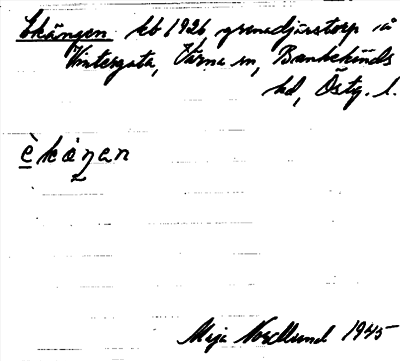 Ekängen kb 1926, grenadjärstorp på
Vintergata, Värna sn, Bankekinds
hd, Östg. l.
èkàŋan
Maja Nordlund 1945